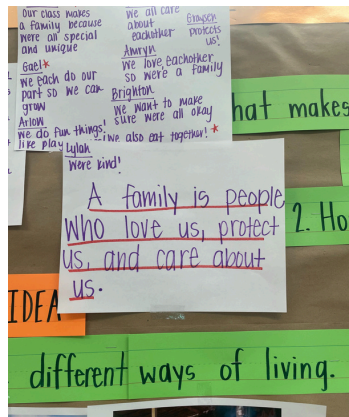 Our class makes
a family because
were all special
and unique
Gael*
we each do our
part so we can
grow
Arlow
we do fun things!
like play
we all care
about
eachother
Amryn
we love eachother
so were a family
Brighton
we want to make
sure were all okay
we also eat together! *
Grayson
protects
us!
Lylah
were kind!
A family is people
who love us, protect
us, and care about
us.
hat makes
2. Ho
IDEA
different ways of living.